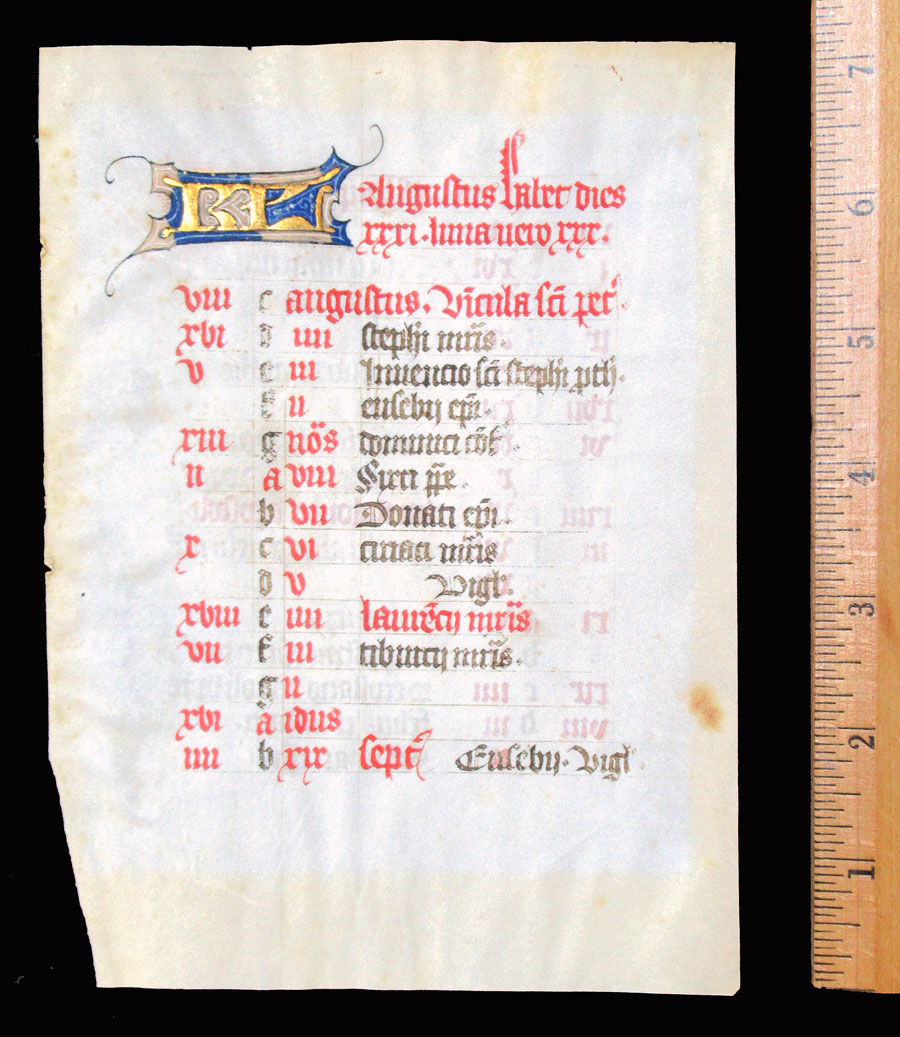 KL Augustus habet dies
xxxi. luna vero xxx.
viii c augustus. Vīcula scī pet'.
xvi d iiii steph̄i mr̄is.
v e iii Inuencio scī steph̄i pth̄.
f ii eusebij ep̄i.
xiii g nōs dominici cōf.
ii A viii Sixti p̄pe.
b vii Donati ep̄i.
x c vi ciriaci mr̄is
d v Vigl'.
xviii e iiii laurēcij mr̄is.
vii f iii tiburcij mr̄is.
g ii
xvi a idus
iiii b xix sept' Eusebij. Vigl'
7
6
5
4
3
2
1